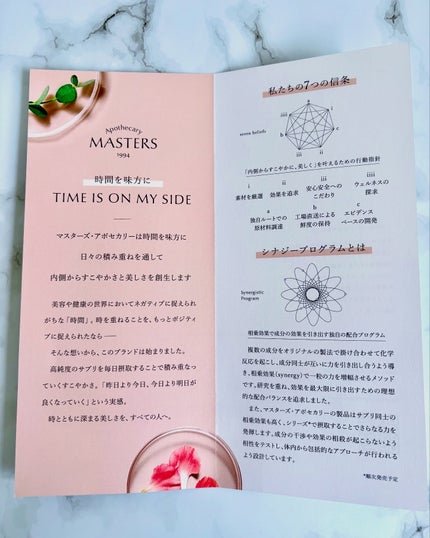 Apothecary
MASTERS
1994
時間を味方に
TIME IS ON MY SIDE
マスターズ・アポセカリーは時間を味方に
日々の積み重ねを通して
内側からすこやかさと美しさを創生します
美容や健康の世界においてネガティブに捉えられ
がちな「時間」。時を重ねることを、もっとポジティ
ブに捉えられたなら——
そんな想いから、このブランドは始まりました。
高純度のサプリを毎日摂取することで積み重なっ
ていくすこやかさ。「昨日より今日、今日より明日が
良くなっていく」という実感。
時とともに深まる美しさを、すべての人へ。
私たちの7つの信条
seven beliefs
a
i
c
ii
iii
b
iiii
「内側からすこやかに、美しく」を叶えるための行動指針
i
素材を厳選
ii
効果を追求
iii
安心安全への
こだわり
iiii
ウェルネスの
探求
a
独自ルートでの
原材料調達
b
工場直送による
鮮度の保持
c
エビデンス
ベースの開発
シナジープログラムとは
Synergistic
Program
相乗効果で成分の効果を引き出す独自の配合プログラム
複数の成分をオリジナルの製法で掛け合わせて化学
反応を起こし、成分同士が互いに力を引き出し合うよう導
き、相乗効果(synergy)で一粒の力を増幅させるメソッド
です。研究を重ね、効果を最大限に引き出すための理想
的な配合バランスを追求しました。
また、マスターズ・アポセカリーの製品はサプリ同士の
相乗効果も高く、シリーズ*で摂取することでさらなる力を
発揮します。成分の干渉や効果の相殺が起こらないよう
相性をテストし、体内から包括的なアプローチが行われる
よう設計しています。
*順次発売予定